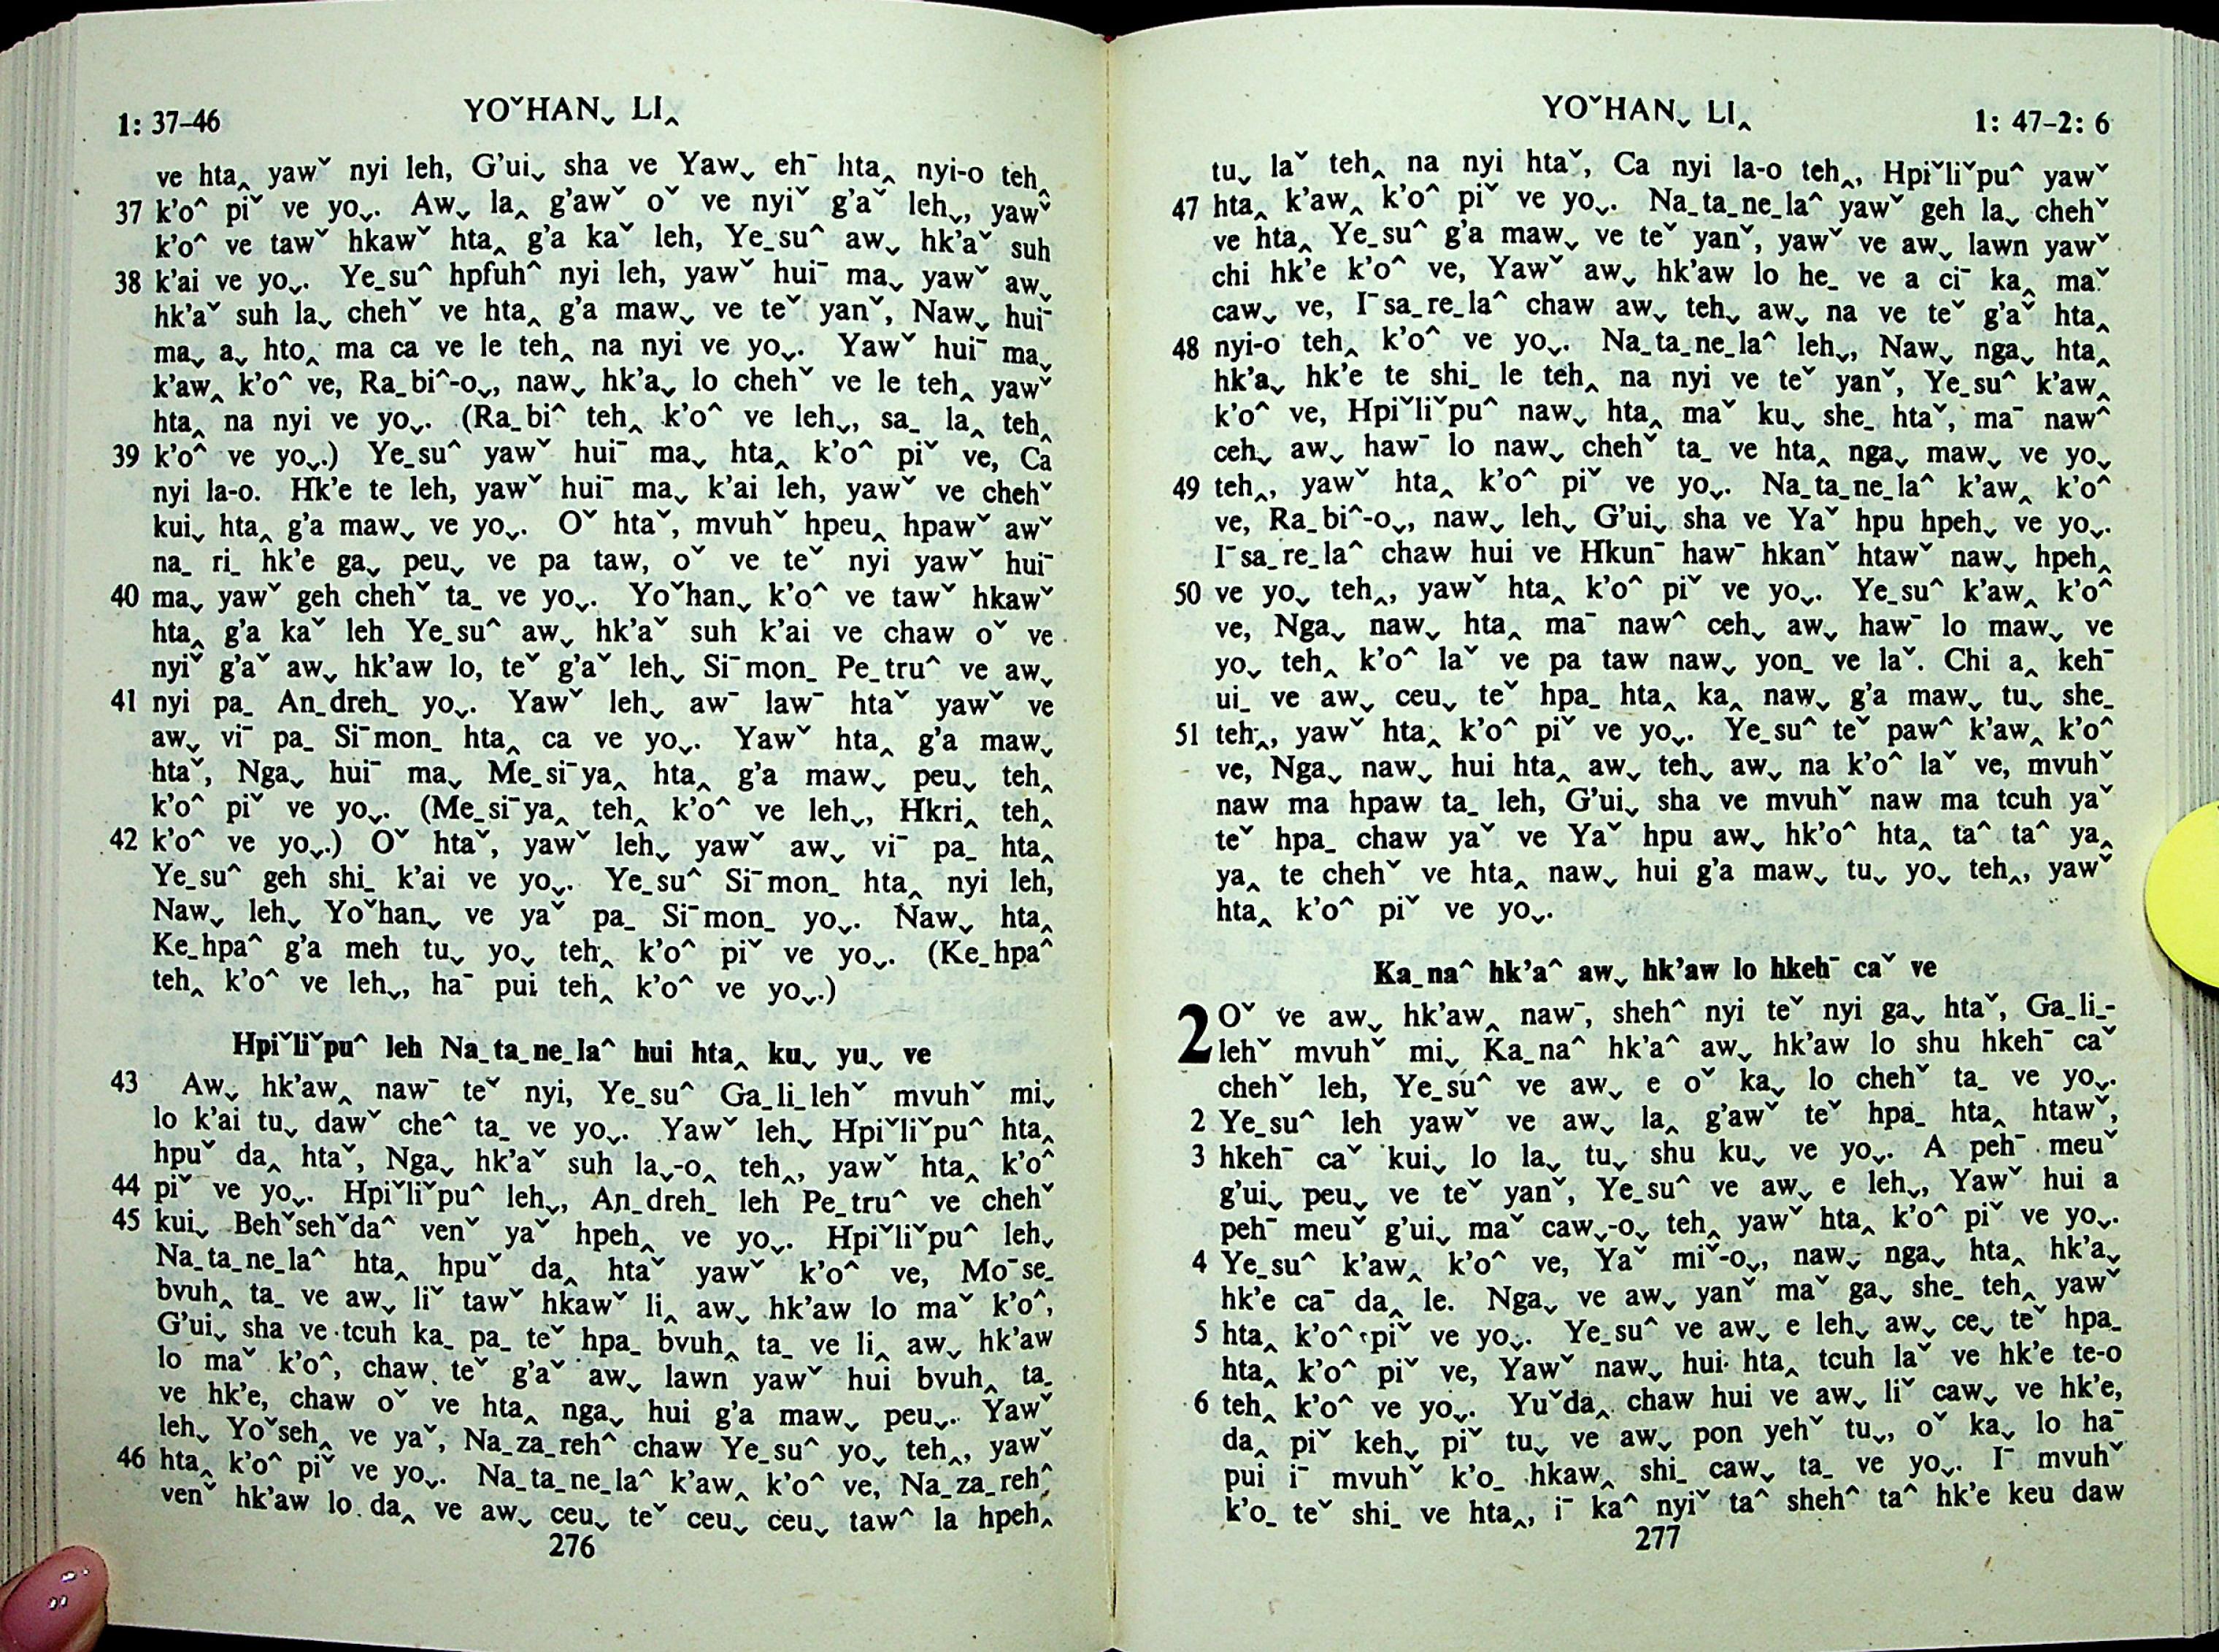 1: 37–46
YOˇHANˬ LI‸
ve hta‸ yawˇ nyi leh, G'uiˬ sha ve Yawˬ ehˉ hta‸ nyi-o teh‸
37 k'o^ piˇ ve yoˬ. Awˬ la‸ g'awˇ oˇ ve nyiˇ g'aˇ lehˬ, yawˇ
k'o^ ve tawˇ hkawˇ hta‸ g'a kaˇ leh, Ye_su^ awˬ hk'aˇ suh
38 k'ai ve yoˬ. Ye_su^ hpfuh^ nyi leh, yawˇ huiˉ maˬ yawˇ awˬ
hk'aˇ suh laˬ chehˇ ve hta‸ g'a mawˬ ve teˇ yanˇ, Nawˬ huiˉ
maˬ aˬ hto‸ ma ca ve le teh‸ na nyi ve yoˬ. Yawˇ huiˉ maˬ
k'aw‸ k'o^ ve, Ra_bi^-oˬ, nawˬ hk'aˬ lo chehˇ ve le teh‸ yawˇ
hta‸ na nyi ve yoˬ. (Ra_bi^ teh‸ k'o^ ve lehˬ, sa_ la‸ teh‸
39 k'o^ ve yoˬ.) Ye_su^ yawˇ huiˉ maˬ hta‸ k'o^ piˇ ve, Ca
nyi la-o. Hk'e te leh, yawˇ huiˉ maˬ k'ai leh, yawˇ ve chehˇ
kuiˬ hta‸ g'a mawˬ ve yoˬ. Oˇ htaˇ, mvuhˇ hpeu‸ hpawˇ awˇ
na_ ri_ hk'e gaˬ peuˬ ve pa taw, oˇ ve teˇ nyi yawˇ huiˉ
40 maˬ yawˇ geh chehˇ ta_ ve yoˬ. Yoˇhanˬ k'o^ ve tawˇ hkawˇ
hta‸ g'a kaˇ leh Ye_su^ awˬ hk'aˇ suh k'ai ve chaw oˇ ve
nyiˇ g'aˇ awˬ hk'aw lo, teˇ g'aˇ lehˬ Siˉmon_ Pe_tru^ ve awˬ
41 nyi pa_ An_dreh_ yoˬ. Yawˇ lehˬ awˉ lawˉ htaˇ yawˇ ve
awˬ viˉ pa_ Siˉmon_ hta‸ ca ve yoˬ. Yawˇ hta‸ g'a mawˬ
htaˇ, Ngaˬ huiˉ maˬ Me_siˉya‸ hta‸ g'a mawˬ peuˬ teh‸
k'o^ piˇ ve yoˬ. (Me_siˉya‸ teh‸ k'o^ ve lehˬ, Hkri‸ teh‸
42 k'o^ ve yoˬ.) Oˇ htaˇ, yawˇ lehˬ yawˇ awˬ viˉ pa_ hta‸
Ye_su^ geh shi_ k'ai ve yoˬ. Ye_su^ Siˉmon_ hta‸ nyi leh,
Nawˬ lehˬ Yoˇhanˬ ve yaˇ pa_ Siˉmon_ yoˬ. Nawˬ hta‸
Ke_hpa^ g'a meh tuˬ yoˬ teh‸ k'o^ piˇ ve yoˬ. (Ke_hpa^
teh‸ k'o^ ve lehˬ, haˉ pui teh‸ k'o^ ve yoˬ.)
Hpiˇliˇpu^ leh Na_ta_ne_la^ hui hta‸ kuˬ yuˬ ve
43 Awˬ hk'aw‸ nawˉ teˇ nyi, Ye_su^ Ga_li_lehˇ mvuhˇ miˬ
lo k'ai tuˬ dawˇ che^ ta_ ve yoˬ. Yawˇ lehˬ Hpiˇliˇpu^ hta‸
hpuˇ da‸ htaˇ, Ngaˬ hk'aˇ suh laˬ-o‸ teh‸, yawˇ hta‸ k'o^
44 piˇ ve yoˬ. Hpiˇliˇpu^ lehˬ, An_dreh_ leh Pe_tru^ ve chehˇ
45 kuiˬ Behˇsehˇda^ venˇ yaˇ hpeh‸ ve yoˬ. Hpiˇliˇpu^ lehˬ
Na_ta_ne_la^ hta‸ hpuˇ da‸ htaˇ yawˇ k'o^ ve, Moˉse_
bvuh‸ ta_ ve awˬ liˇ tawˇ hkawˇ li‸ awˬ hk'aw lo maˇ k'o^,
G'uiˬ sha ve tcuh ka_ pa_ teˇ hpa_ bvuh‸ ta_ ve li‸ awˬ hk'aw
lo maˇ k'o^, chaw teˇ g'aˇ awˬ lawn yawˇ hui bvuh‸ ta_
ve hk'e, chaw oˇ ve hta‸ ngaˬ hui g'a mawˬ peuˬ. Yawˇ
lehˬ Yoˇseh‸ ve yaˇ, Na_za_reh^ chaw Ye_su^ yoˬ teh‸, yawˇ
46 hta‸ k'o^ piˇ ve yoˬ. Na_ta_ne_la^ k'aw‸ k'o^ ve, Na_za_reh^
venˇ hk'aw lo da‸ ve awˬ ceuˬ teˇ ceuˬ ceuˬ taw^ la hpeh‸
276
YOˇHANˬ LI‸
1: 47–2: 6
tuˬ laˇ teh‸ na nyi htaˇ, Ca nyi la-o teh‸, Hpiˇliˇpu^ yawˇ
47 hta‸ k'aw‸ k'o^ piˇ ve yoˬ. Na_ta_ne_la^ yawˇ geh laˬ chehˇ
ve hta‸ Ye_su^ g'a mawˬ ve teˇ yanˇ, yawˇ ve awˬ lawn yawˇ
chi hk'e k'o^ ve, Yawˇ awˬ hk'aw lo he_ ve a ciˉ ka‸ maˇ
cawˬ ve, Iˉsa_re_la^ chaw awˬ tehˬ awˬ na ve teˇ g'aˇ hta‸
48 nyi-o teh‸ k'o^ ve yoˬ. Na_ta_ne_la^ lehˬ, Nawˬ ngaˬ hta‸
hk'aˬ hk'e te shi_ le teh‸ na nyi ve teˇ yanˇ, Ye_su^ k'aw‸
k'o^ ve, Hpiˇliˇpu^ nawˬ hta‸ maˇ kuˬ she_ htaˇ, maˉ naw^
cehˬ awˬ hawˉ lo nawˬ chehˇ ta_ ve hta‸ ngaˬ mawˬ ve yoˬ
49 teh‸, yawˇ hta‸ k'o^ piˇ ve yoˬ. Na_ta_ne_la^ k'aw‸ k'o^
ve, Ra_bi^-oˬ, nawˬ lehˬ G'uiˬ sha ve Yaˇ hpu hpehˬ ve yoˬ.
Iˉsa_re_la^ chaw hui ve Hkunˉ hawˉ hkanˇ htawˇ nawˬ hpeh‸
50 ve yoˬ teh‸, yawˇ hta‸ k'o^ piˇ ve yoˬ. Ye_su^ k'aw‸ k'o^
ve, Ngaˬ nawˬ hta‸ maˉ naw^ cehˬ awˬ hawˉ lo mawˬ ve
yoˬ teh‸ k'o^ laˇ ve pa taw nawˬ yon_ ve laˇ. Chi a‸ kehˉ
ui_ ve awˬ ceuˬ teˇ hpa_ hta‸ ka‸ nawˬ g'a mawˬ tuˬ she_
51 teh‸, yawˇ hta‸ k'o^ piˇ ve yoˬ. Ye_su^ teˇ paw^ k'aw‸ k'o^
ve, Ngaˬ nawˬ hui hta‸ awˬ tehˬ awˬ na k'o^ laˇ ve, mvuhˇ
naw ma hpaw ta_ leh, G'uiˬ sha ve mvuhˇ naw ma tcuh yaˇ
teˇ hpa_ chaw yaˇ ve Yaˇ hpu awˬ hk'o^ hta‸ ta^ ta^ ya‸
ya‸ te chehˇ ve hta‸ nawˬ hui g'a mawˬ tuˬ yoˬ teh‸, yawˇ
hta‸ k'o^ piˇ ve yoˬ.
Ka_na^ hk'a^ awˬ hk'aw lo hkehˉ caˇ ve
2 Oˇ ve awˬ hk'aw‸ nawˉ, sheh^ nyi teˇ nyi gaˬ htaˇ, Ga_li_-
lehˇ mvuhˇ miˬ Ka_na^ hk'a^ awˬ hk'aw lo shu hkehˉ caˇ
chehˇ leh, Ye_su^ ve awˬ e oˇ kaˬ lo chehˇ ta_ ve yoˬ.
2 Ye_su^ leh yawˇ ve awˬ la‸ g'awˇ teˇ hpa_ hta‸ htawˇ,
3 hkehˉ caˇ kuiˬ lo laˬ tuˬ shu kuˬ ve yoˬ. A pehˉ meuˇ
g'uiˬ peuˬ ve teˇ yanˇ, Ye_su^ ve awˬ e lehˬ, Yawˇ hui a
pehˉ meuˇ g'uiˬ maˇ cawˬ-oˬ teh‸ yawˇ hta‸ k'o^ piˇ ve yoˬ.
4 Ye_su^ k'aw‸ k'o^ ve, Yaˇ miˇ-oˬ, nawˬ ngaˬ hta‸ hk'aˬ
hk'e caˉ da‸ le. Ngaˬ ve awˬ yanˇ maˇ gaˬ she_ teh‸ yawˇ
5 hta‸ k'o^ piˇ ve yoˬ. Ye_su^ ve awˬ e lehˬ awˬ ceˬ teˇ hpa_
hta‸ k'o^ piˇ ve, Yawˇ nawˬ hui hta‸ tcuh laˇ ve hk'e te-o
6 teh‸ k'o^ ve yoˬ. Yuˇda‸ chaw hui ve awˬ liˇ cawˬ ve hk'e,
da‸ piˇ kehˬ piˇ tuˬ ve awˬ pon yehˇ tuˬ, oˇ kaˬ lo haˉ
pui iˉ mvuhˇ k'o_ hkaw‸ shi_ cawˬ ta_ ve yoˬ. Iˉ mvuhˇ
k'o_ teˇ shi_ ve hta‸, iˉ ka^ nyiˇ ta^ sheh^ ta^ hk'e keu daw
277